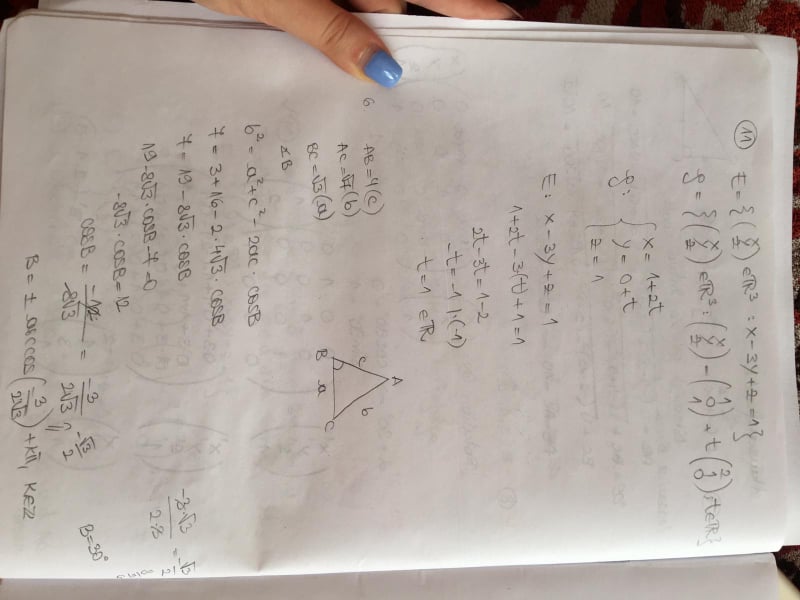 11
E = {(x y z) ∈ ℝ³ : x - 3y + z = 1}
ρ = {(x y z) ∈ ℝ³ : (x y z) = (1 0 1) + t (2 1 0), t∈ℝ}
x = 1+2t
ρ: y = 0+t
z = 1
E: x - 3y + z = 1
1+2t - 3(t) + 1 = 1
2t - 3t = 1-2
-t = -1 |·(-1)
t = 1 ∈ℝ
6.
AB = 4 (c)
AC = √7 (b)
BC = √3 (a)
∢B
A
c b
B a C
b² = a² + c² - 2ac · cosB
7 = 3 + 16 - 2·4√3 · cosB
7 = 19 - 8√3 · cosB
19 - 8√3 · cosB - 7 = 0
-8√3 · cosB = 12
cosB = -12/-8√3 = -3/2√3 = -√3/2
-3·√3/2·3 = -√3/2
B = 30°
B = ± arccos(-3/2√3) + kπ, k∈ℤ